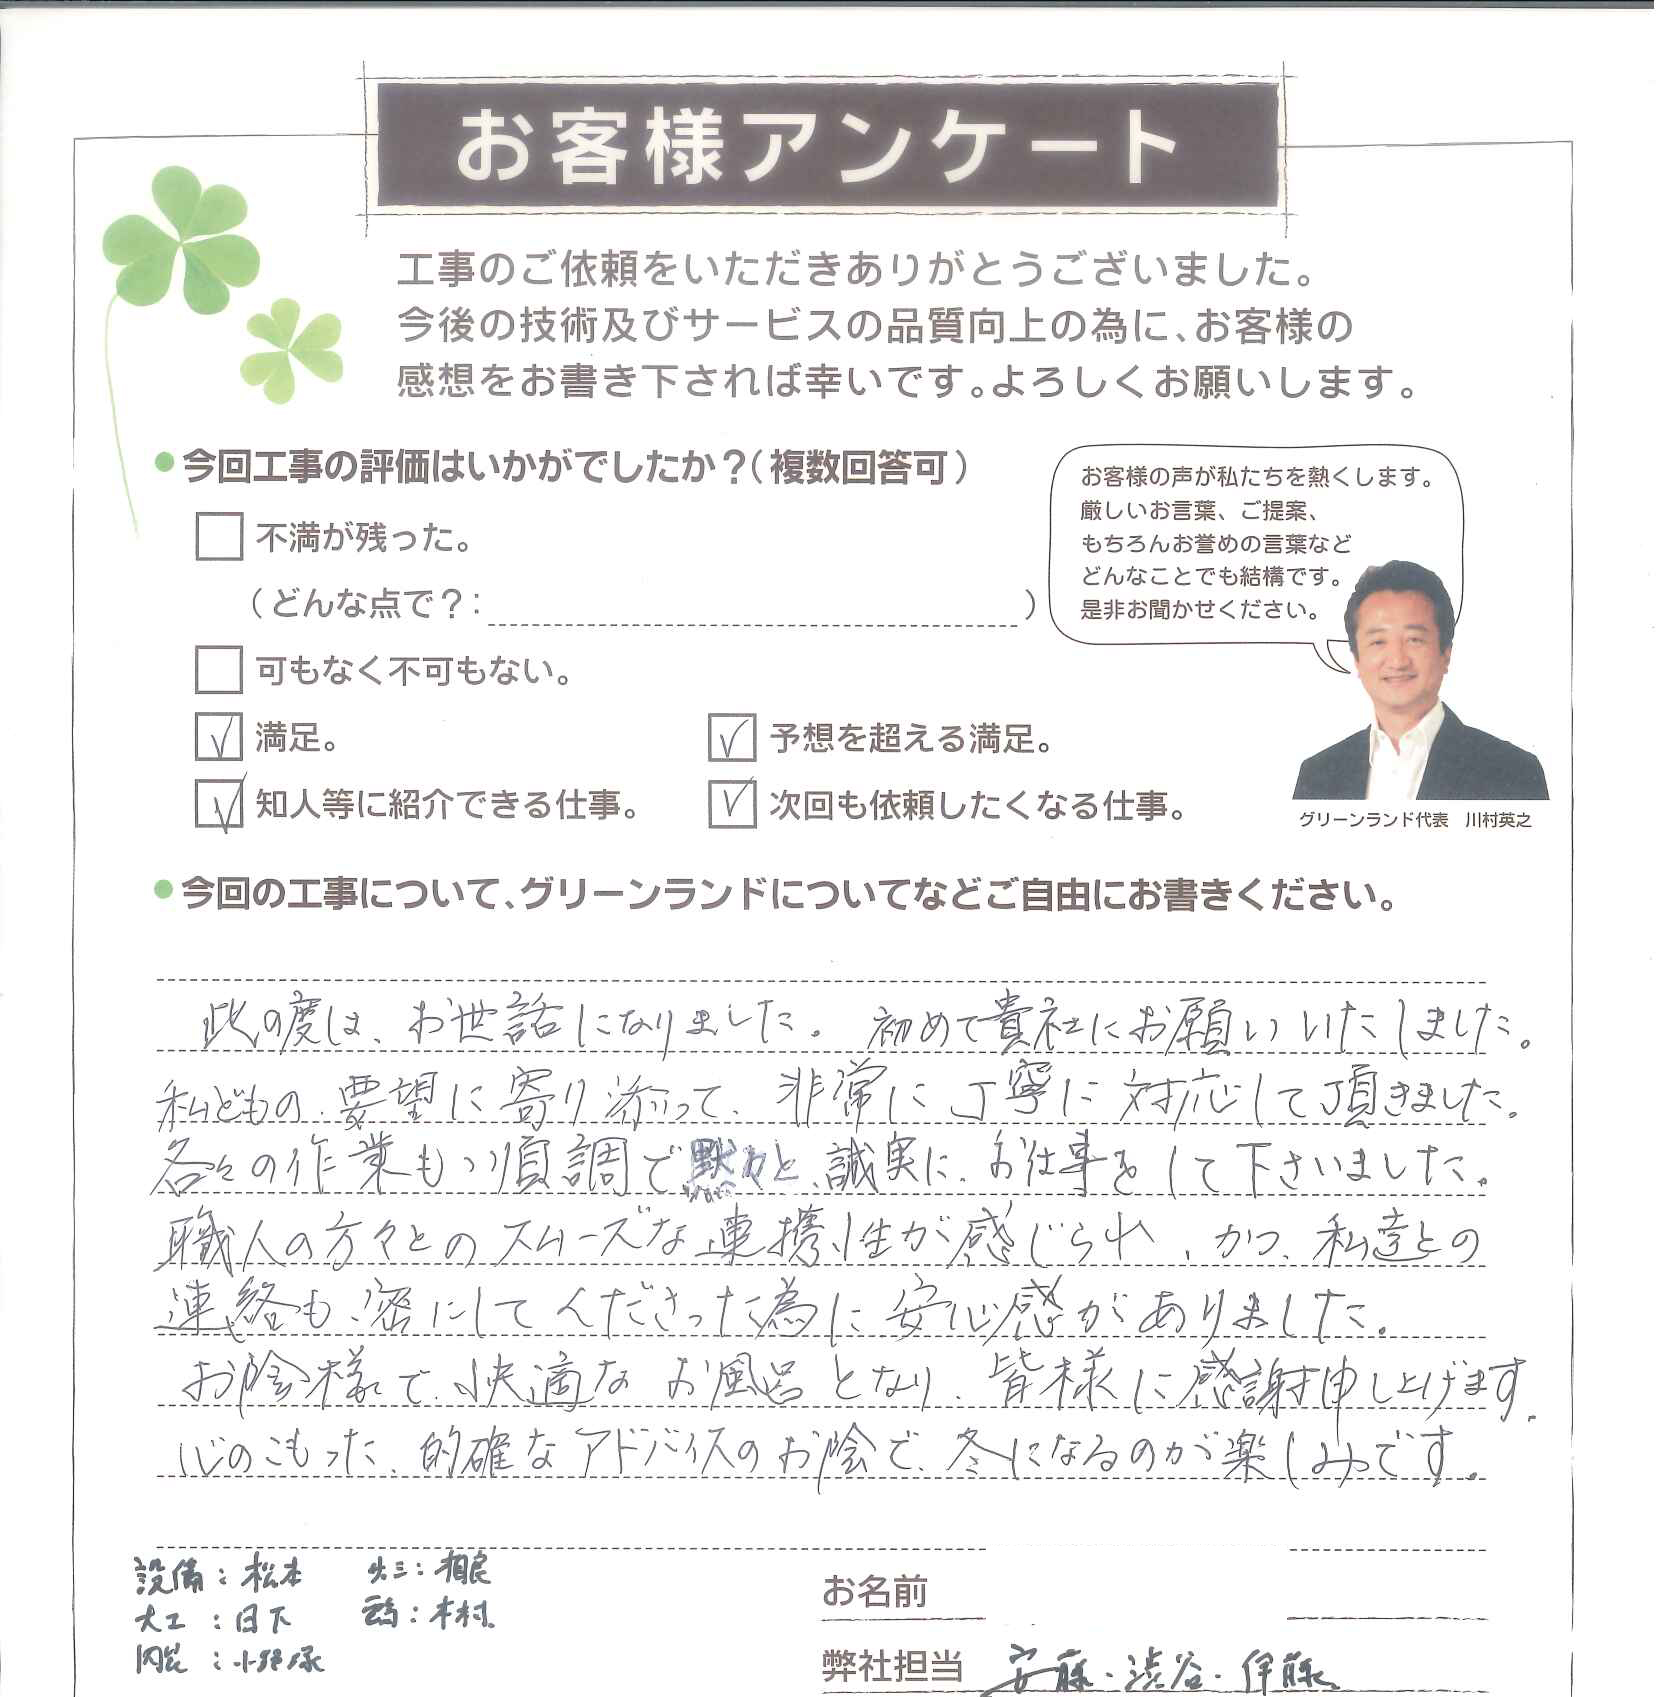 お客様アンケート
工事のご依頼をいただきありがとうございました。
今後の技術及びサービスの品質向上の為に、お客様の
感想をお書き下されば幸いです。よろしくお願いします。
●今回工事の評価はいかがでしたか?(複数回答可)
不満が残った。
(どんな点で?: )
可もなく不可もない。
満足。
予想を超える満足。
知人等に紹介できる仕事。
次回も依頼したくなる仕事。
お客様の声が私たちを熱くします。
厳しいお言葉、ご提案、
もちろんお誉めの言葉など
どんなことでも結構です。
是非お聞かせください。
グリーンランド代表 川村英之
●今回の工事について、グリーンランドについてなどご自由にお書きください。
此の度は、お世話になりました。初めて貴社にお願いいたしました。
私どもの要望に寄り添って、非常に丁寧に対応して頂きました。
各々の作業も順調で黙々と、誠実に、お仕事をして下さいました。
職人の方々とのスムーズな連携性が感じられ、かつ、私達との
連絡も密にしてくださった為に安心感がありました。
お陰様で、快適なお風呂となり、皆様に感謝申し上げます。
心のこもった、的確なアドバイスのお陰で、冬になるのが楽しみです。
設備:松本
大工:日下
:小野塚
:相良
:木村
お名前
弊社担当 安藤・渋谷・伊藤